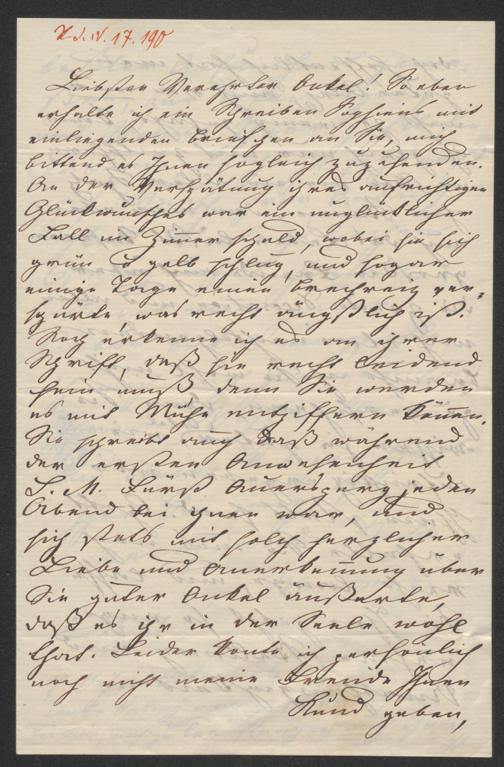 17. 190
Liebster Verehrter Onkel! So eben
erhalte ich ein Schreiben Sophiens mit
einliegenden Briefchen an Sie, mich
bittend es Ihnen sogleich zuzusenden.
An der Verspätung ihres aufrichtigen
Glückwunsches war ein unglücklicher
Fall im Zimmer schuld, wobei sie sich
grün & gelb schlug, und sogar
einige Tage einen Brechreiz ver-
spürte, was recht ängstlich ist.
Auch erkenne ich es an ihrer
Schrift, daß sie recht leidend
sein muß denn Sie werden
es mit Mühe entziffern können.
Sie schreibt auch daß während
der ersten Anwesenheit
I. M. Fürst Auersperg jeden
Abend bei ihnen war, und
sich stets mit solch herzlicher
Liebe und Anerkennung über
Sie guter Onkel äußerte,
daß es ihr in der Seele wohl
that. Leider konte ich persönlich
noch nicht meine Freude Ihnen
Kund geben,